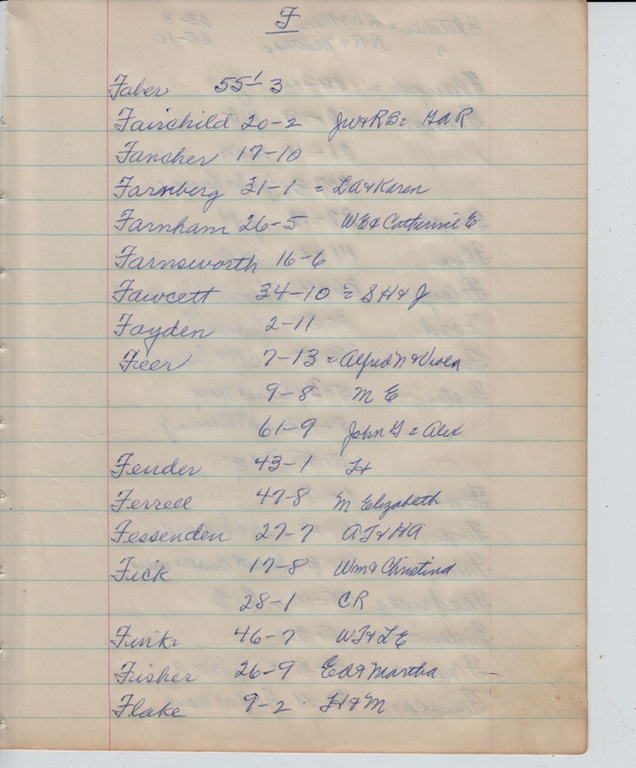 F
Faber 55-3
Fairchild 20-2 JW&RB = HAR
Fancher 17-10
Farnberg 31-1 = LA & Karen
Farnham 26-5 WE & Catherine E
Farnsworth 16-6
Fawcett 34-10 = SH & J
Fayden 2-11
Feer 7-13 = Alfred N &
9-8 M E
61-9 John G = Alex
Fender 43-1
Ferrell 47-8 M Elizabeth
Fessenden 27-7 AT & HA
Fick 17-8 Wm & Christina
28-1 CR
46-7
Fisher 26-9 Ed & Martha
Flake 9-2 H & M